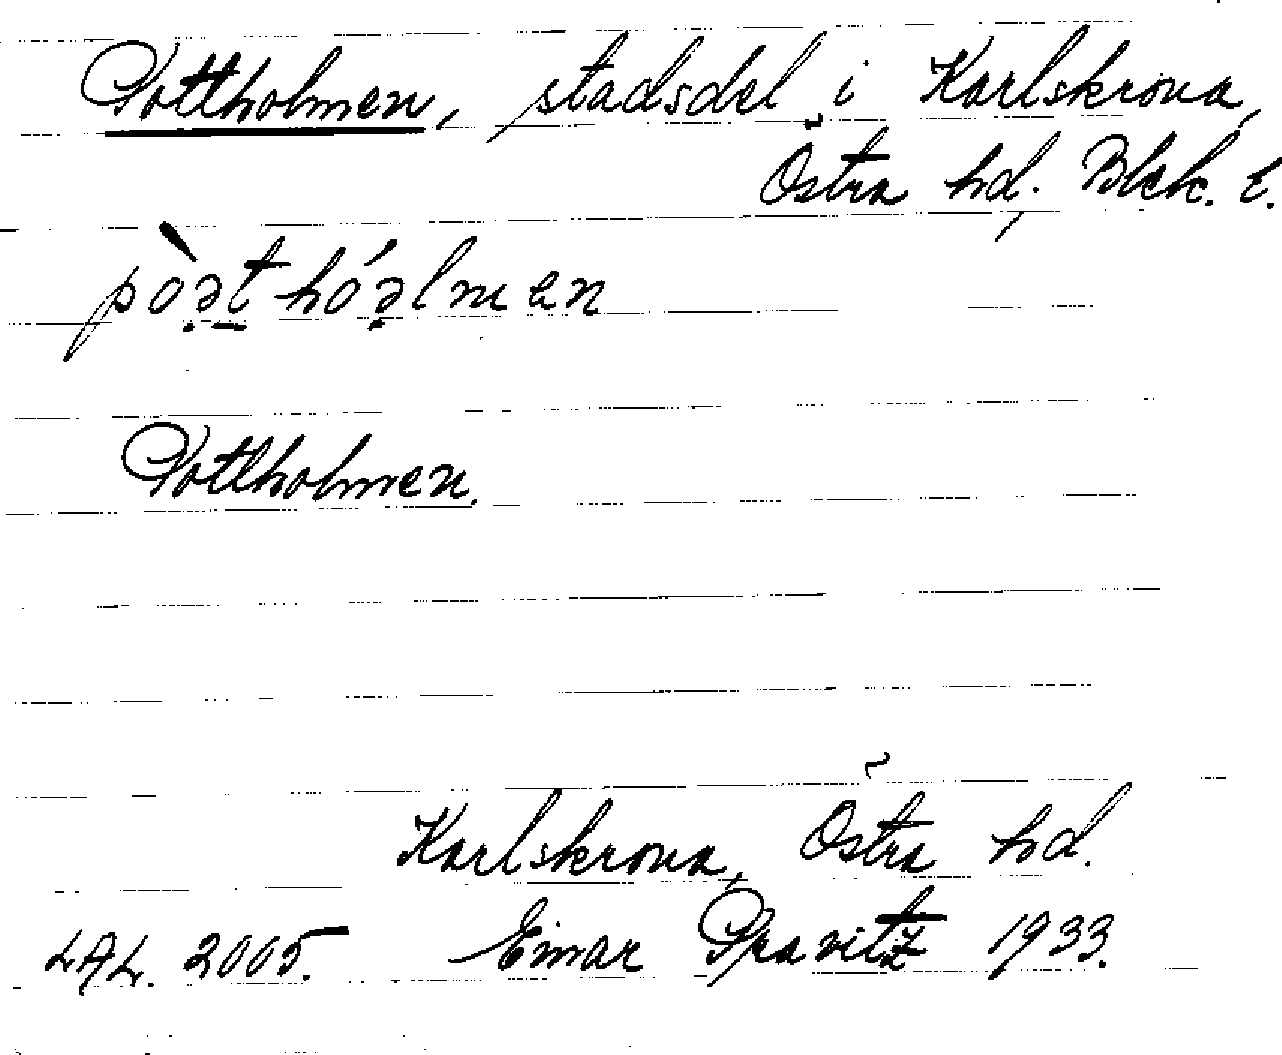 Pottholmen, stadsdel i Karlskrona,
Östra hd, Blek. l.
pòə̣t̲hóə̣lmen
Pottholmen.
Karlskrona, Östra hd.
LAL. 2005. Einar Pravitz 1933.